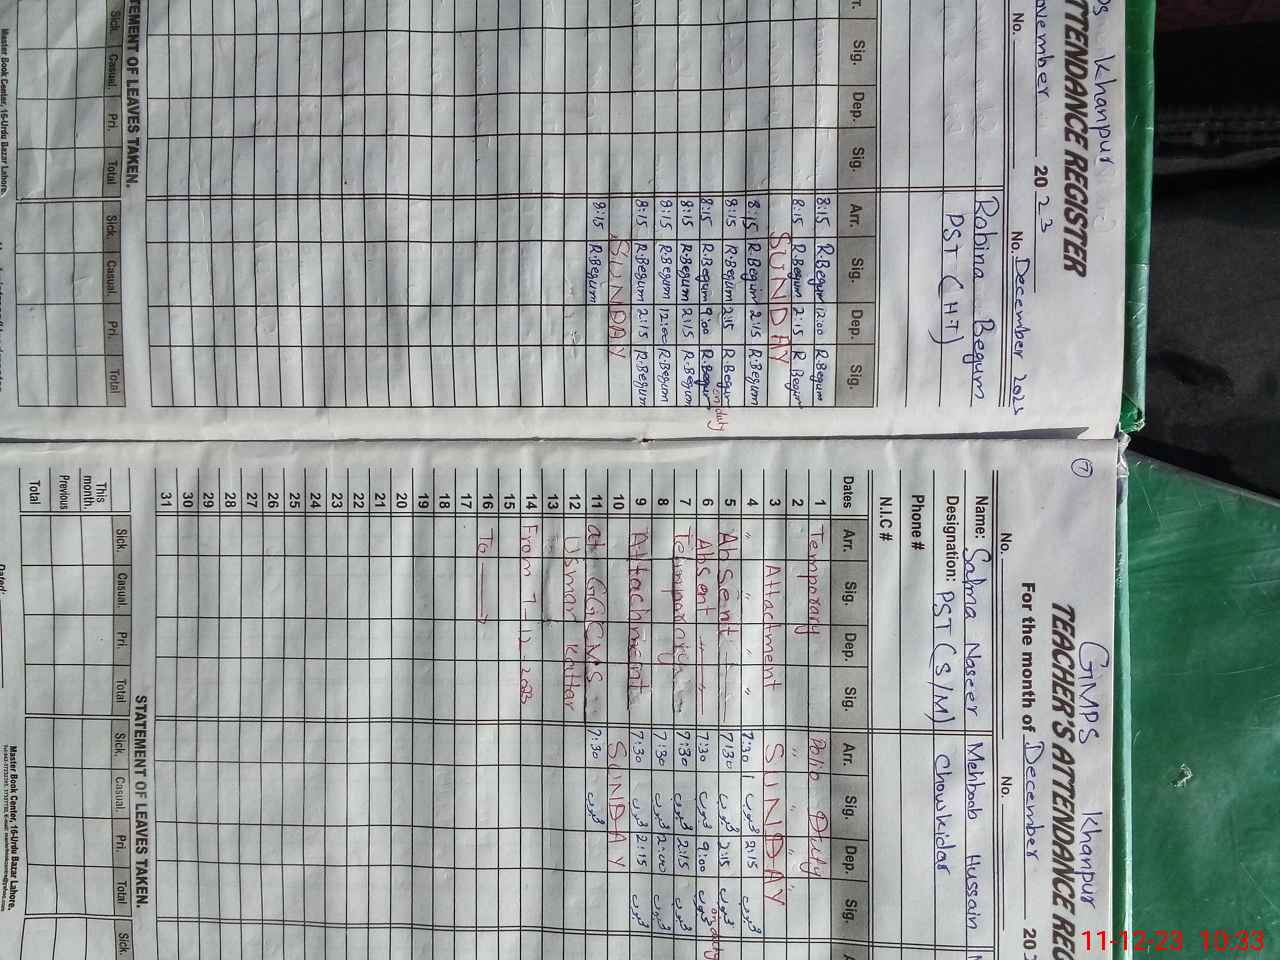 Khanpur
ATTENDANCE REGISTER
November 2023
No.
No. December 2023
Robina Begum
PST (H.T)
Sig. Dep. Sig. Arr. Sig. Dep. Sig.
8:15 R.Begum 12:00 R.Begum
8:15 R.Begum 2:15 R.Begum
SUNDAY
8:15 R.Begum 2:15 R.Begum
8:15 R.Begum 2:15 R.Begum
8:15 R.Begum 9:00 R.Begum on duty
8:15 R.Begum 2:15 R.Begum
8:15 R.Begum 12:00 R.Begum
8:15 R.Begum 2:15 R.Begum
SUNDAY
8:15 R.Begum
STATEMENT OF LEAVES TAKEN.
Sick. Casual. Pri. Total Sick. Casual. Pri. Total
Master Book Center, 16-Urdu Bazar Lahore.
7
GMPS Khanpur
TEACHER'S ATTENDANCE REG
For the month of December 20
No. No.
Name: Salma Naseer Mehboob Hussain
Designation: PST (S/M) Chowkidar
Phone #
N.I.C #
Dates Arr. Sig. Dep. Sig. Arr. Sig. Dep. Sig.
1 Temporary Polio Duty
2 " " " "
3 Attachment SUNDAY
4 " " " " 7:30 2:15
5 Absent 7:30 2:15
6 Absent 7:30 9:00 on duty
7 Temporary 7:30 2:15
8 7:30 12:00
9 Attachment 7:30 2:15
10 SUNDAY
11 at GGCMS 7:30
12 Usman Khattar
13
14 From 7-12-2023
15
16 To
17
18
19
20
21
22
23
24
25
26
27
28
29
30
31
STATEMENT OF LEAVES TAKEN.
Sick. Casual. Pri. Total Sick. Casual. Pri. Total Sick.
This month.
Previous
Total
Dated:
Master Book Center, 16-Urdu Bazar Lahore.
11-12-23 10:33